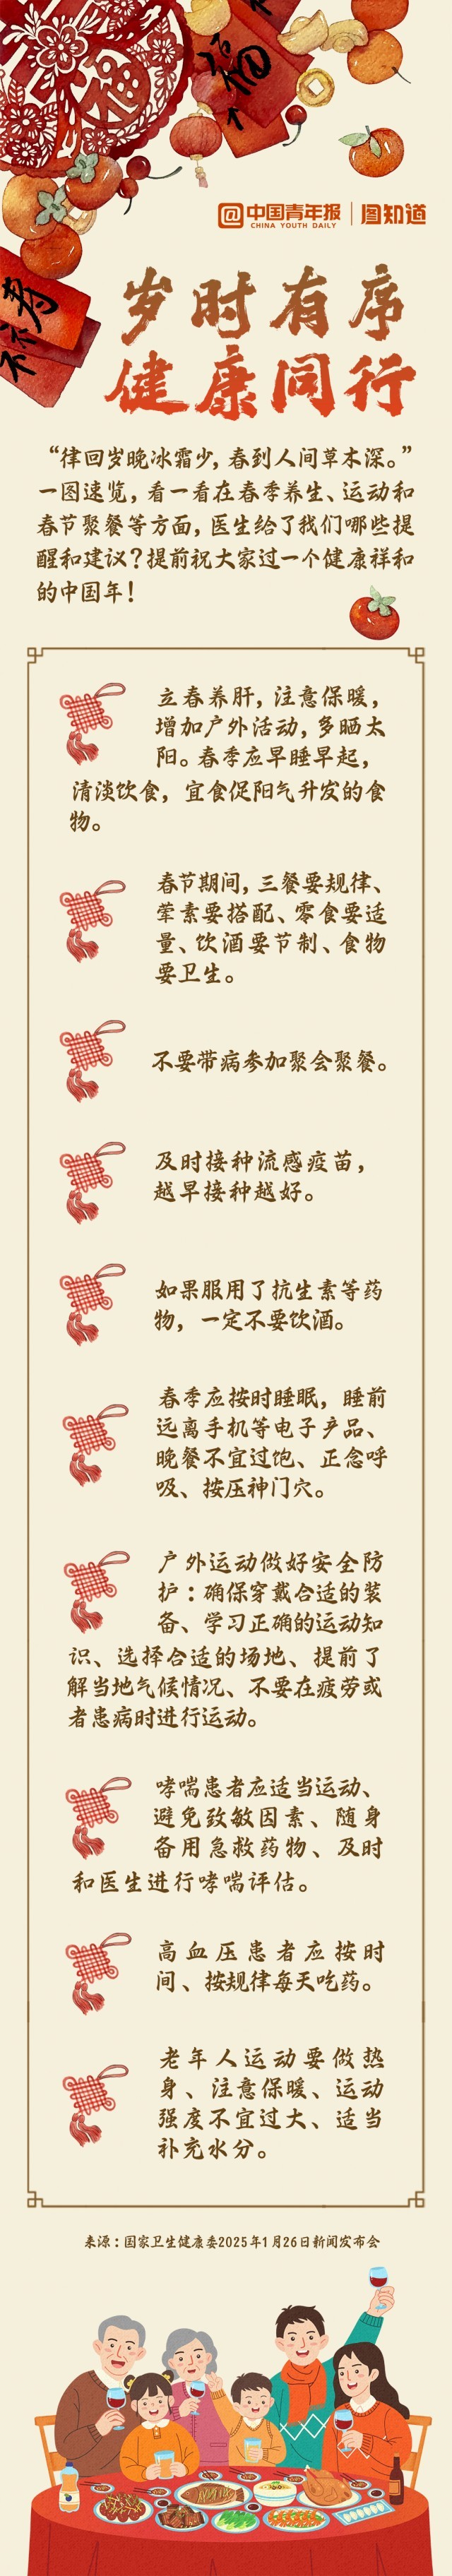 福
福
@中国青年报
CHINA YOUTH DAILY
图知道
岁时有序
健康同行
“律回岁晚冰霜少，春到人间草木深。”
一图速览，看一看在春季养生、运动和
春节聚餐等方面，医生给了我们哪些提
醒和建议？提前祝大家过一个健康祥和
的中国年！
立春养肝，注意保暖，
增加户外活动，多晒太
阳。春季应早睡早起，
清淡饮食，宜食促阳气升发的食
物。
春节期间，三餐要规律、
荤素要搭配、零食要适
量、饮酒要节制、食物
要卫生。
不要带病参加聚会聚餐。
及时接种流感疫苗，
越早接种越好。
如果服用了抗生素等药
物，一定不要饮酒。
春季应按时睡眠，睡前
远离手机等电子产品、
晚餐不宜过饱、正念呼
吸、按压神门穴。
户外运动做好安全防
护：确保穿戴合适的装
备、学习正确的运动知
识、选择合适的场地、提前了
解当地气候情况、不要在疲劳或
者患病时进行运动。
哮喘患者应适当运动、
避免致敏因素、随身
备用急救药物、及时
和医生进行哮喘评估。
高血压患者应按时
间、按规律每天吃药。
老年人运动要做热
身、注意保暖、运动
强度不宜过大、适当
补充水分。
来源：国家卫生健康委2025年1月26日新闻发布会